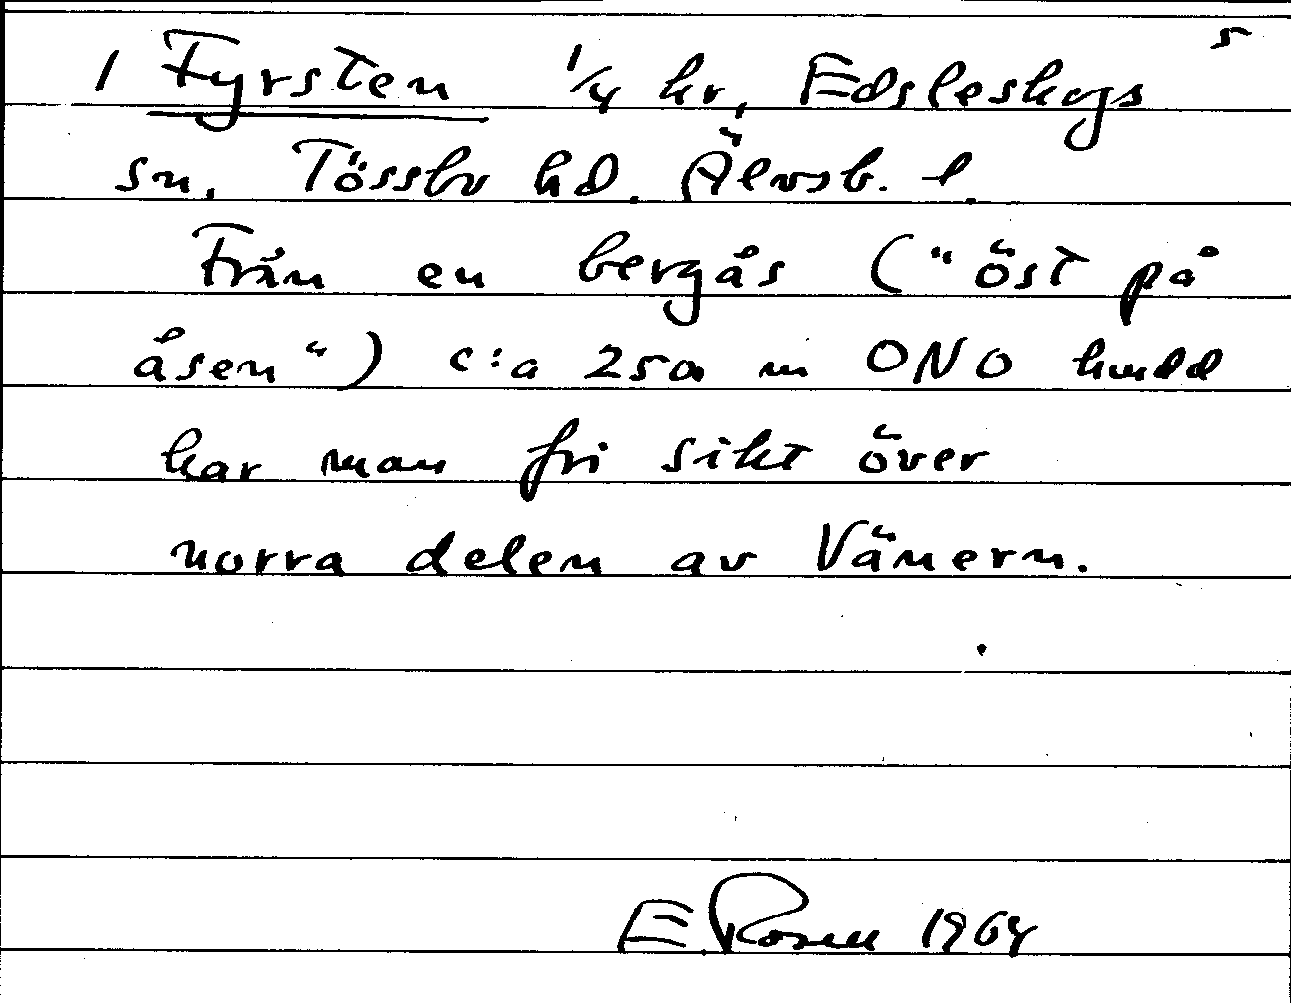 5
1 Fyrsten 1/4 hr, Edsleskogs
sn. Tössbo hd. Älvsb. l.
Från en bergås ("öst på
åsen") c:a 250 m ONO huvudd
har man fri sikt över
norra delen av Vänern.
E. Rosell 1964